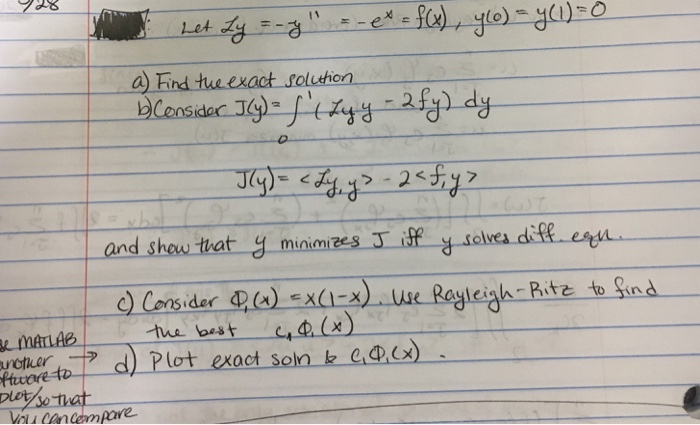 928
Let Ly = -y'' = -e^x = f(x), y(0) = y(1) = 0
a) Find the exact solution
b) Consider J(y) = ∫₀¹ (Ly y - 2fy) dy
J(y) = <Ly, y> - 2<f, y>
and show that y minimizes J iff y solves diff. eqn.
c) Consider Φ₁(x) = x(1-x). Use Rayleigh-Ritz to find
the best c₁Φ₁(x)
d) Plot exact soln & c₁Φ₁(x).
MATLAB
another →
ftware to
plot/so that
you can compare